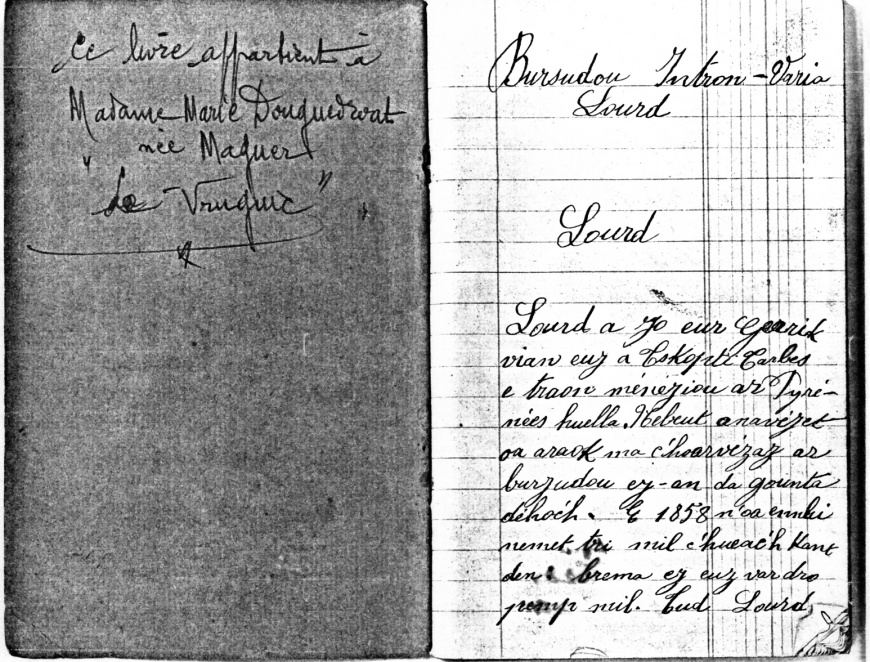 Ce livre appartient à
Madame Marie Douguedroat
née Maguer
"de Vruguic"
Bursudou Intron-Varia
Lourd
Lourd
Lourd a zo eur Gearik
vian euz a Eskopti Tarbes
e traon méneziou ar Pyré-
nées huella. Nebeut anavézet
oa araok ma c'hoarvézaz ar
burzudou ez-an da gounta
déhoc'h. E 1858 n'oa ennhi
nemet tri mil c'hueac'h kant
den brema ez euz var dro
pemp mil. Tud Lourd